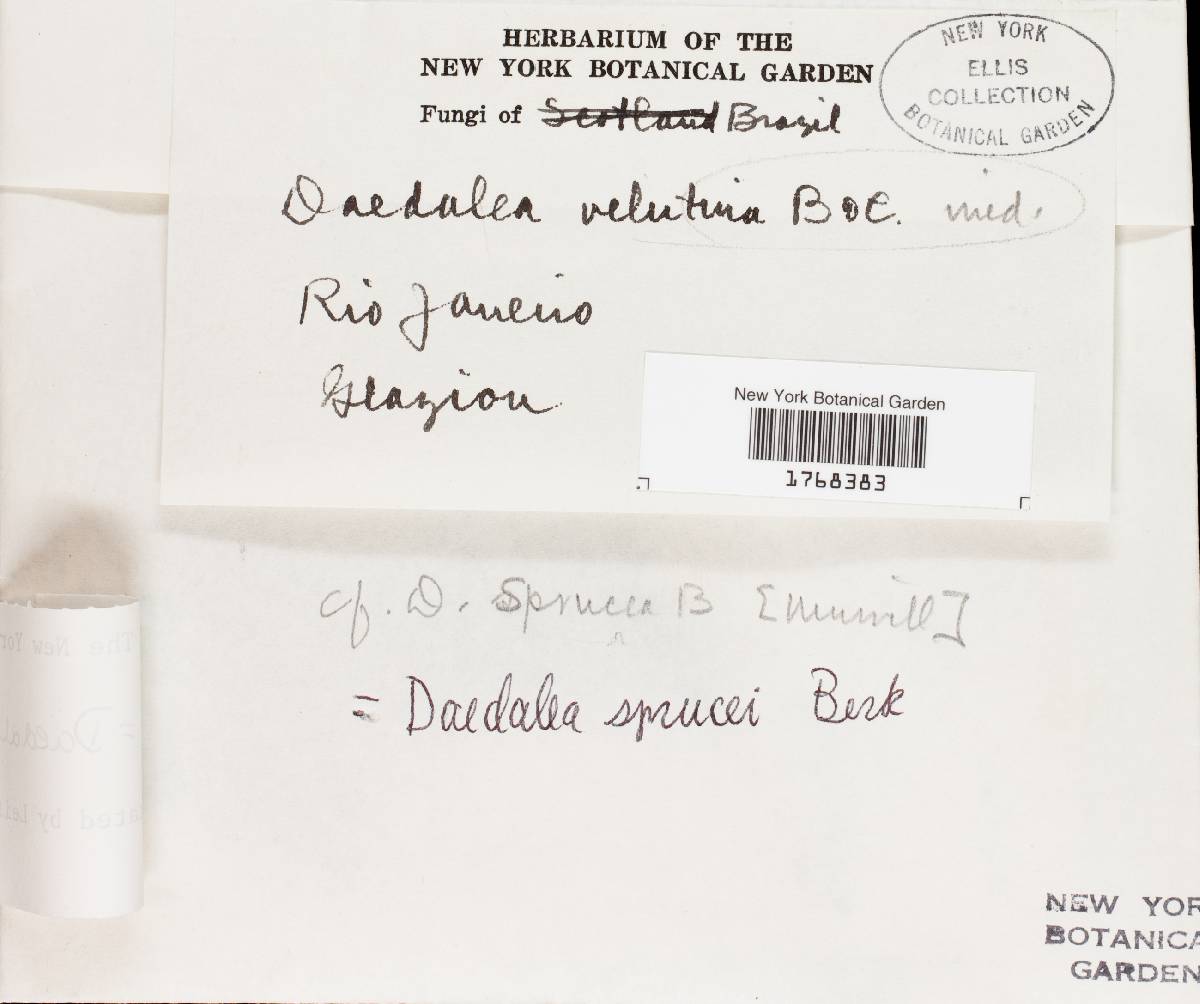 HERBARIUM OF THE
NEW YORK BOTANICAL GARDEN
Fungi of Scotland Brazil
NEW YORK
ELLIS
COLLECTION
BOTANICAL GARDEN
Daedalea velutina B & C. ined.
Rio Janeiro
Glaziou
New York Botanical Garden
1768383
cf. D. Sprucea B [Murrill]
= Daedalea sprucei Berk
The New Yor
= Daedal
ated by Lei
NEW YOR
BOTANICA
GARDEN